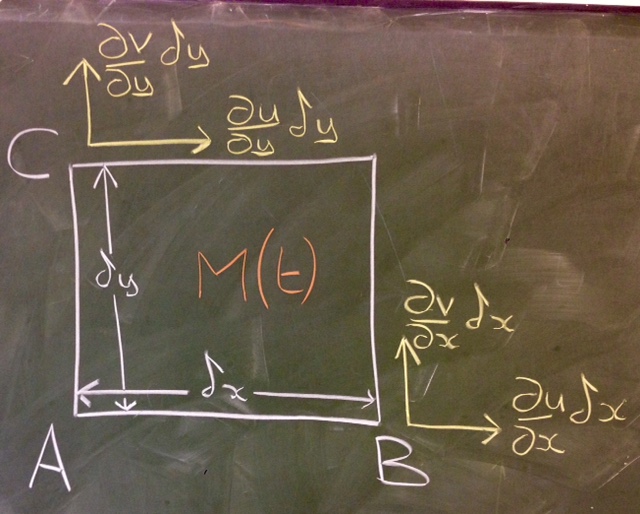 ∂v/∂y δy
∂u/∂y δy
C
δy
M(t)
δx
∂v/∂x δx
∂u/∂x δx
A
B